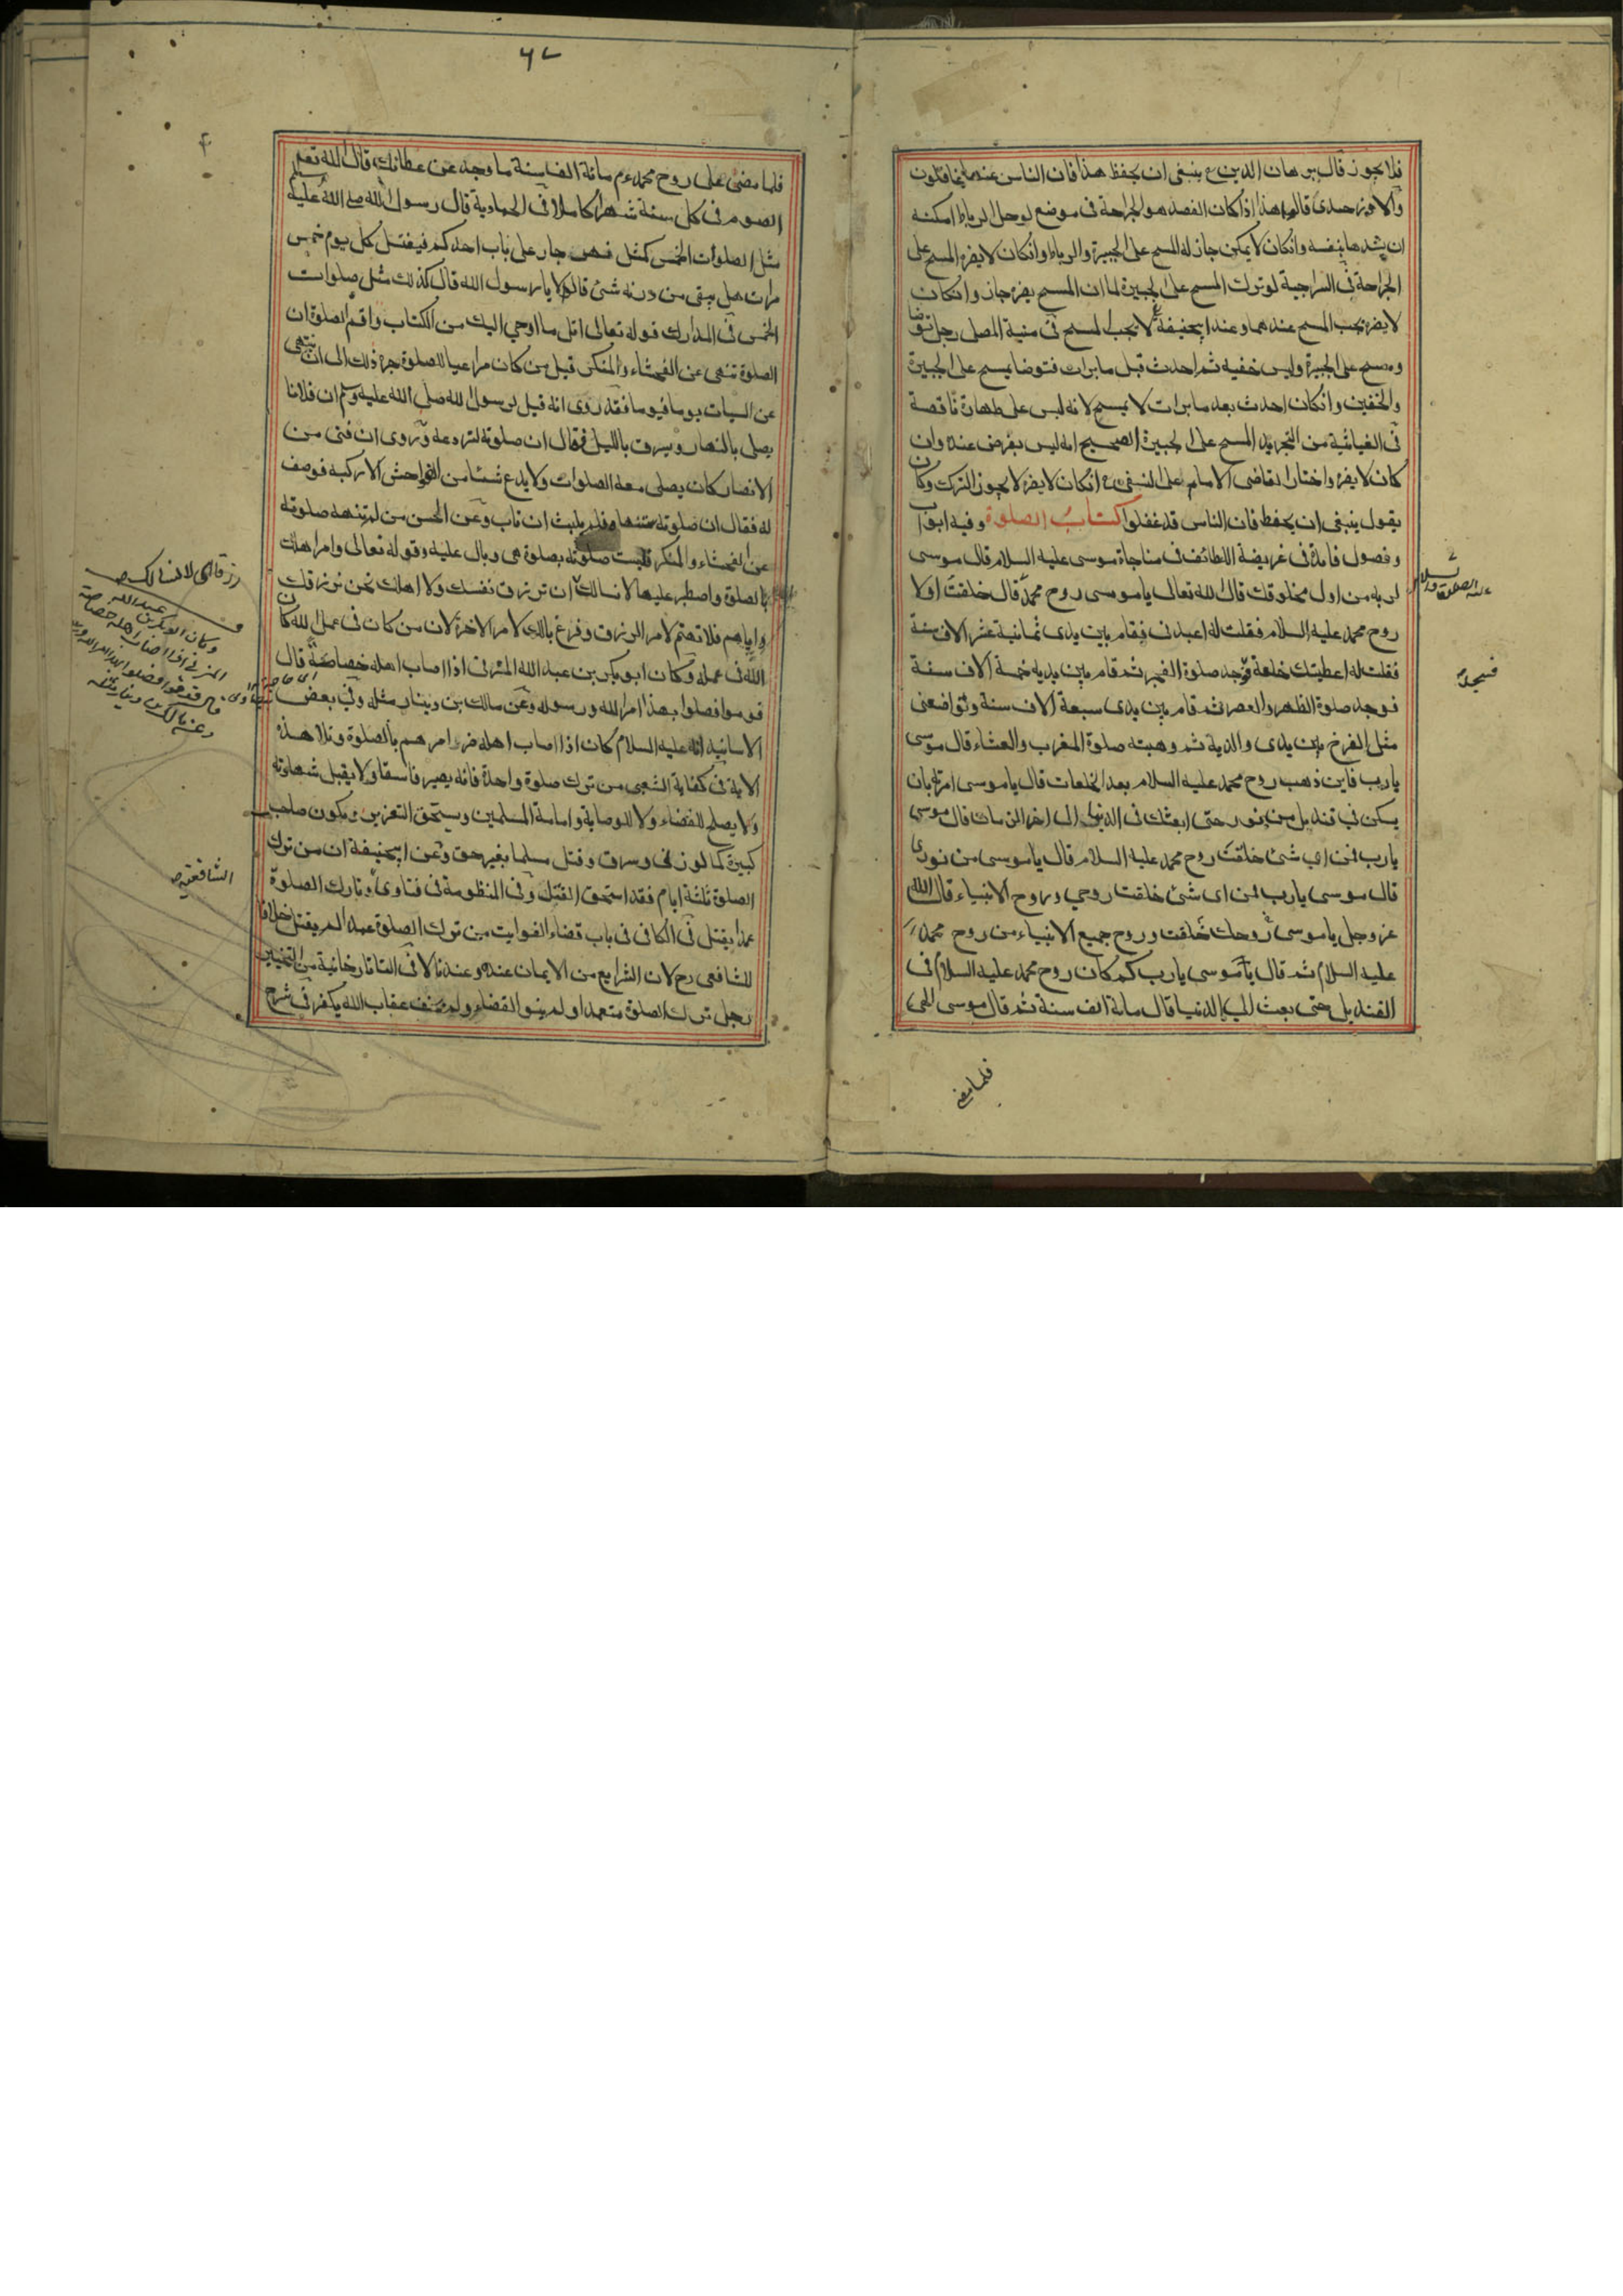 فلا يجوز قال برهان الدين ينبغى ان يحفظ هذا فان الناس عنها غافلون
هذا اذا كان الفصد هو الجراحة فى موضع لو حل الرباط امكنه
ان يشدها بنفسه وان كان لا يمكن جاز له المسح على الجبيرة والرباط وان كان لا يضره المسح على
الجراحة فى السراجية لو ترك المسح على الجبيرة لما ان المسح يضره جاز وان كان
لا يضره يجب المسح عندهما وعند ابيحنيفة لا يجب المسح فى منية المصلى رجل توضأ
ومسح على الجبيرة ولبس خفيه ثم احدث قبل ما برات فتوضا يمسح على الجبيرة
والخفين وان كان احدث بعد ما برات لا يمسح لانه لبس على طهارة ناقصة
فى الغياثية من التجريد المسح على الجبيرة الصحيح انه ليس بفرض عنده وان
كان لا يضره واختار القاضى الامام على النسفى ان كان لا يضره لا يجوز الترك وكان
يقول ينبغى ان يحفظ فان الناس قد غفلوا كتاب الصلوة وفيه ابواب
وفصول فايدة فى غريضة اللطائف فى مناجاة موسى عليه السلام قال موسى
لربه من اول مخلوقك قال الله تعالى يا موسى روح محمد قال خلقت اولا
روح محمد عليه السلام فقلت له اعبدنى فقام بين يدى ثمانية عشر الاف سنة
فقلت له اعطيتك خلعة فوجد صلوة الفجر ثم قام بين يديه خمسة الاف سنة
فوجد صلوة الظهر والعصر ثم قام بين يدى سبعة الاف سنة وتواضعنى
مثل الفرخ بين يدى والديه ثم وهبته صلوة المغرب والعشاء قال موسى
يا رب فاين ذهب روح محمد عليه السلام بعد الخلعات قال يا موسى امرته بان
يسكن فى قنديل من نور حتى ابعثك فى الدنيا الى اخر الزمان قال موسى
يا رب من اي شئ خلقت روح محمد عليه السلام قال يا موسى من نورى
قال موسى يا رب من اى شئ خلقت روحي وروح الانبياء قال الله
عز وجل يا موسى روحك خلقت وروح جميع الانبياء من روح محمد
عليه السلام ثم قال يا موسى يا رب كم كان روح محمد عليه السلام فى
القنديل حتى بعث الى الدنيا قال ماية الف سنة ثم قال موسى الهى
عليه الصلوة والسلام
فسجد
فلما مضى
٦٧
فلما مضى على روح محمد عم مائة الف سنة ما وجد عن عطائك قال الله تعالى
الصوم فى كل سنة شهرا كاملا فى الحمادية قال رسول الله صلى الله عليه وسلم
مثل الصلوات الخمس كمثل نهر جار على باب احدكم فيغتسل كل يوم خمس
مرات هل يبقى من درنه شئ قالوا لا يا رسول الله قال كذلك مثل صلوات
الخمس فى المدارك قوله تعالى اتل ما اوحي اليك من الكتاب واقم الصلوة ان
الصلوة تنهى عن الفحشاء والمنكر قيل من كان مراعيا للصلوة جره ذلك الى ان ينتهى
عن السيات يوما فيوما فقد روى انه قيل لرسول الله صلى الله عليه وسلم ان فلانا
يصلى بالنهار ويسرق بالليل فقال ان صلوته لتردعه وروى ان فتى من
الانصار كان يصلى معه الصلوات ولا يدع شيئا من الفواحش الا ركبه فوصف
له فقال ان صلوته ستنهاه فلم يلبث ان تاب وعن الحسن من لم تنهه صلوته
عن الفحشاء والمنكر فليست صلوته بصلوة هى وبال عليه وقوله تعالى وامر اهلك
بالصلوة واصطبر عليها لا نسالك ان ترزق نفسك ولا اهلك نحن نرزقك
واياهم فلا تهتم لامر الرزق وفرغ بالك لامر الاخرة لان من كان فى عمل الله كان
الله فى عمله وكان ابو بكر بن عبد الله المزنى اذا اصاب اهله خصاصة قال
قوموا فصلوا بهذا امر الله ورسوله وعن مالك بن دينار مثله وفى بعض
الاسانيد انه عليه السلام كان اذا اصاب اهله ضر امرهم بالصلوة وتلا هذه
الاية فى كفاية الشعبى من ترك صلوة واحدة فانه يصير فاسقا ولا يقبل شهادته
ولا يصلح للقضاء ولا للوصاية وامامة المسلمين ويستحق التعزير ويكون صاحب
كبيرة كما لو زنى وسرق وقتل مسلما بغير حق وعن ابيحنيفة ان من ترك
الصلوة ثلثة ايام فقد استحق القتل وفى المنظومة فى فتاوى وتارك الصلوة
عمدا يقتل فى الكافى فى باب قضاء الفوايت من ترك الصلوة عمدا لم يقتل خلافا
للشافعى رح لان الشرايع من الايمان عنده وعندنا لا فى التاتارخانية من
رجل ترك الصلوة متعمدا ولم ينو القضاء ولم يخف عقاب الله يكفر فى شرح
رزقا اى لا نسالك
وكان ابو بكر بن عبد الله
المزنى اذا اصاب اهله خصاصة
قال قوموا فصلوا بهذا امر الله ورسوله
وعن مالك بن دينار مثله
الشافعية